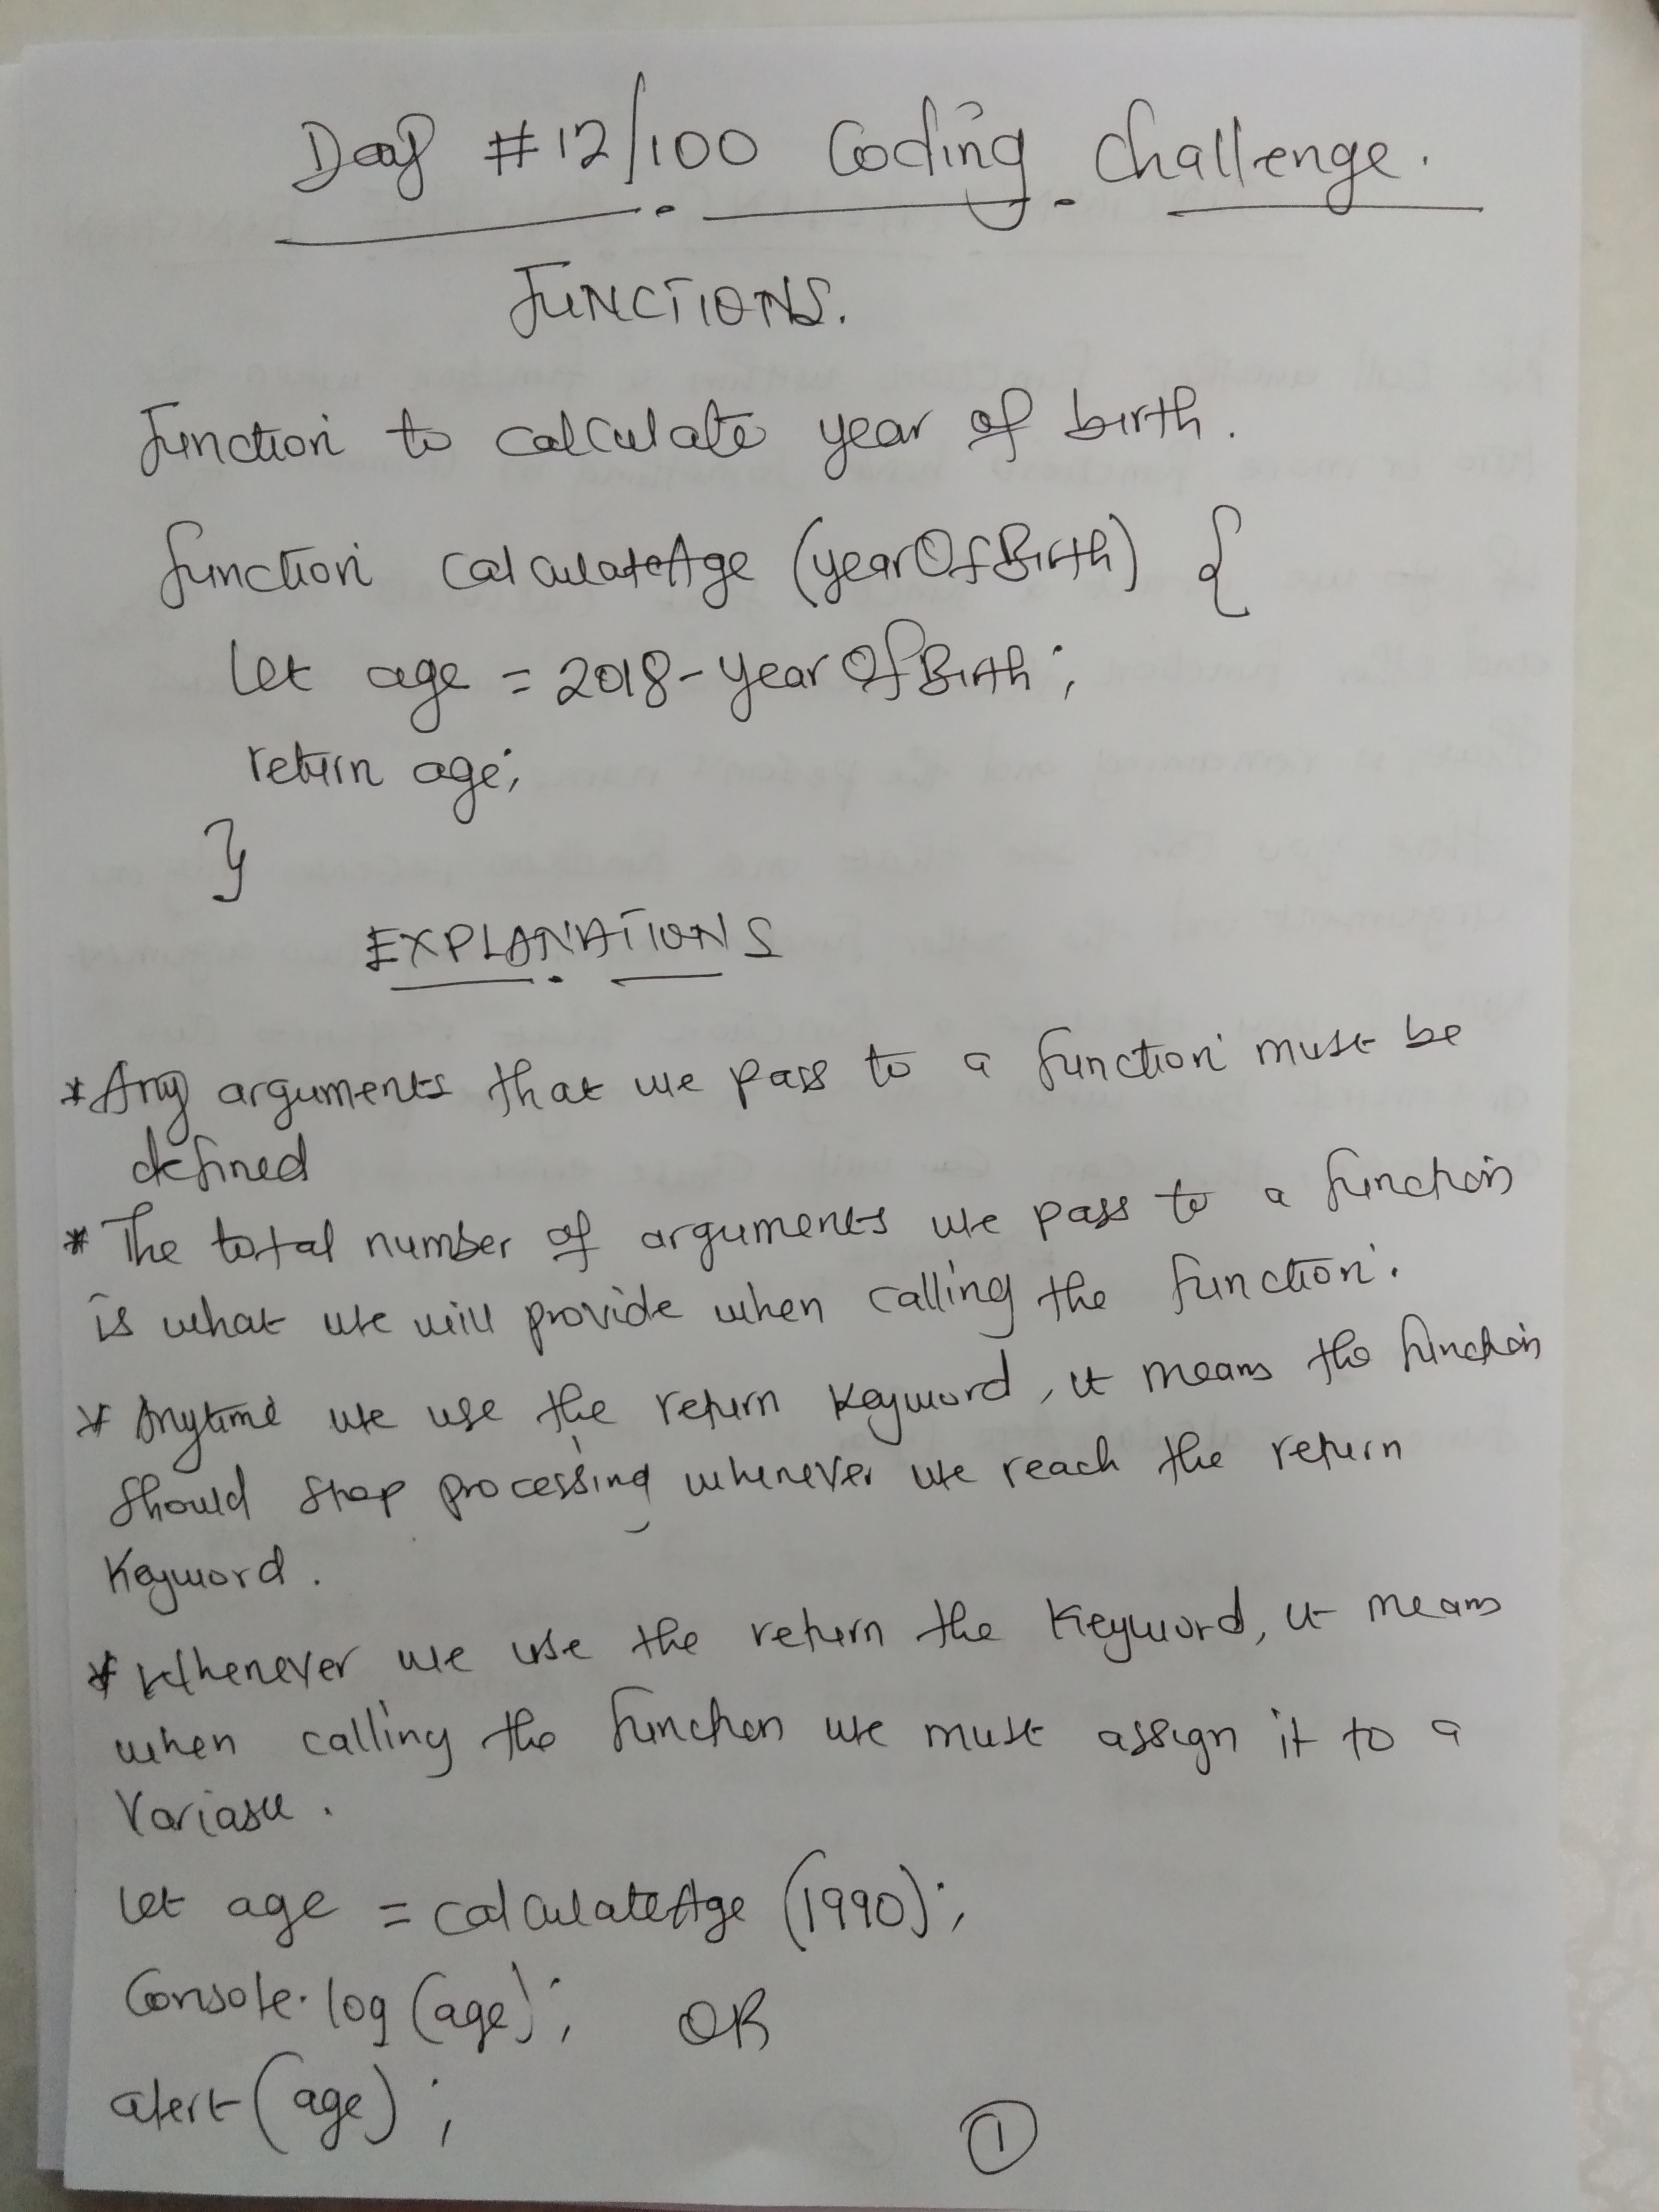 Day #12/100 Coding Challenge.
FUNCTIONS.
Function to calculate year of birth.
function calculateAge (yearOfBirth) {
let age = 2018-yearOfBirth;
return age;
}
EXPLANATIONS
* Any arguments that we pass to a function must be
defined
* The total number of arguments we pass to a function
is what we will provide when calling the function.
* Anytime we use the return keyword, it means the function
should stop processing whenever we reach the return
keyword.
* Whenever we use the return the keyword, it means
when calling the function we must assign it to a
Variable.
let age = calculateAge (1990);
Console.log (age); OR
alert (age);
1